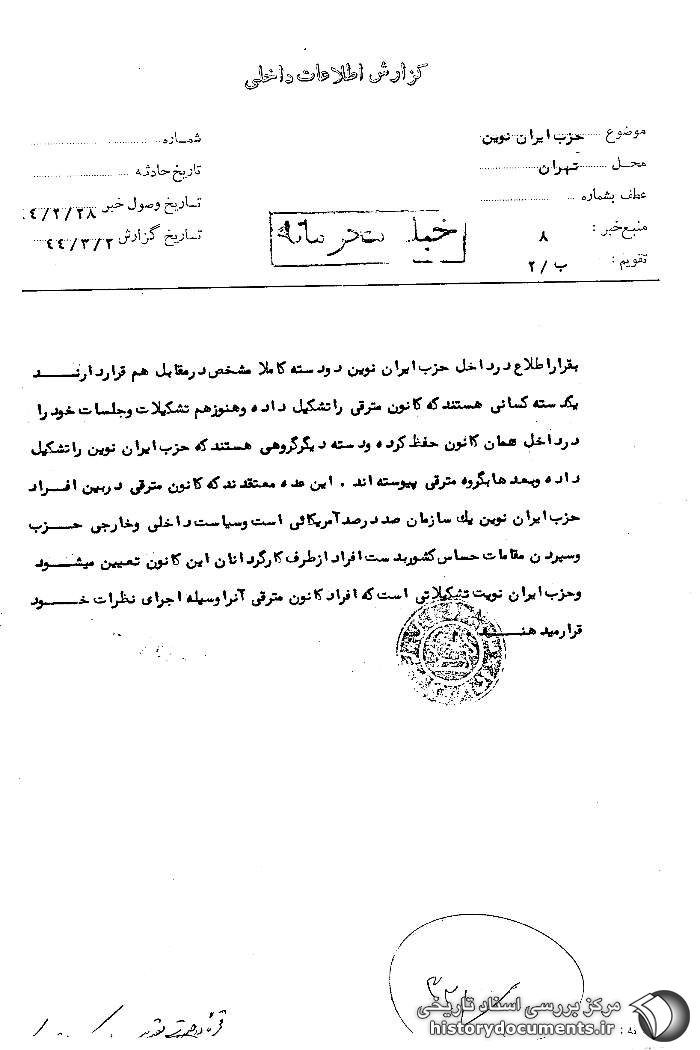 گزارش اطلاعات داخلی
موضوع حزب ایران نوین
محل تهران
عطف بشماره
منبع خبر : ۸
تقویم : ب / ۲
شماره
تاریخ حادثه
تاریخ وصول خبر ٤/۲/۲۸
تاریخ گزارش ٤٤/۳/۲
بقرار اطلاع در داخل حزب ایران نوین دو دسته کاملا مشخص در مقابل هم قرار دارنـــد
یکدسته کسانی هستند که کانون مترقی را تشکیل داده و هنوز هم تشکیلات و جلسات خود را
در داخل همان کانون حفظ کرده و دسته دیگر گروهی هستند که حزب ایران نوین را تشکیل
داده و بعدها بگروه مترقی پیوسته اند . این عده معتقدند که کانون مترقی در بین افـــراد
حزب ایران نوین یك سازمان صد در صد آمریکائی است و سیاست داخلی و خارجی حـــزب
و سپردن مقامات حساس کشور بدست افراد از طرف کارگردانان این کانون تعیین میشـــود
و حزب ایران نویت تشکیلاتی است که افراد کانون مترقی آنرا وسیله اجرای نظرات خـــود
قرار میدهنـــد
مرکز بررسی اسناد تاریخی
historydocuments.ir